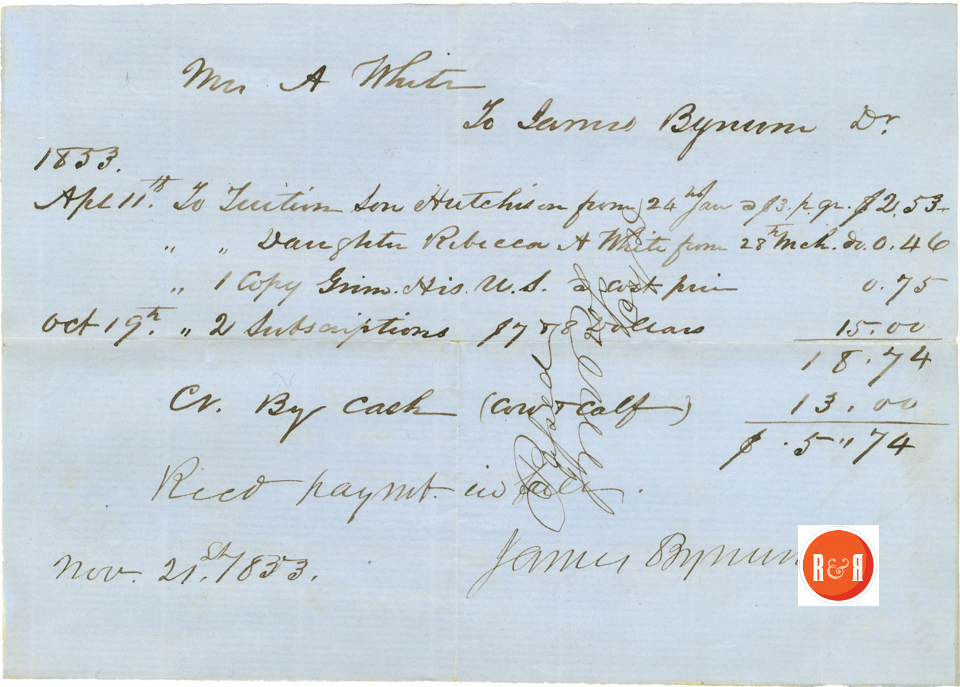 Mrs A White
To James Bynum Dr.
1853.
Apl 11th To Tuition Son Hutchison from 24th Jan a $3. p. qr. $2.53
" " Daughter Rebecca A White from 28th Mch. do. 0.46
" 1 Copy Grim. His. U.S. a cost price 0.75
Oct 19th. " 2 Subscriptions $7 & 8 Dollars 15.00
18.74
Cr. By Cash (Cow & Calf) 13.00
$ 5 " 74
Recd paymt. in full.
Nov. 21st. 1853. James Bynum
R&R